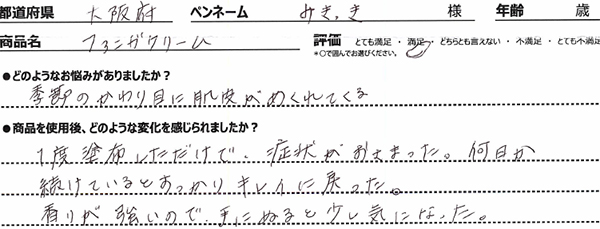 都道府県 大阪府 ペンネーム みき、き 様 年齢 歳
商品名 フェンガクリーム 評価 とても満足 ・ 満足 ・ どちらとも言えない ・ 不満足 ・ とても不満足
*〇で囲んでお選びください。
●どのようなお悩みがありましたか？
季節のかわり目に肌皮がめくれてくる
●商品を使用後、どのような変化を感じられましたか？
1度塗布しただけで、症状がおさまった。何日か
続けているとすっかりキレイに戻った。
香りが強いので、手にぬると少し気になった。